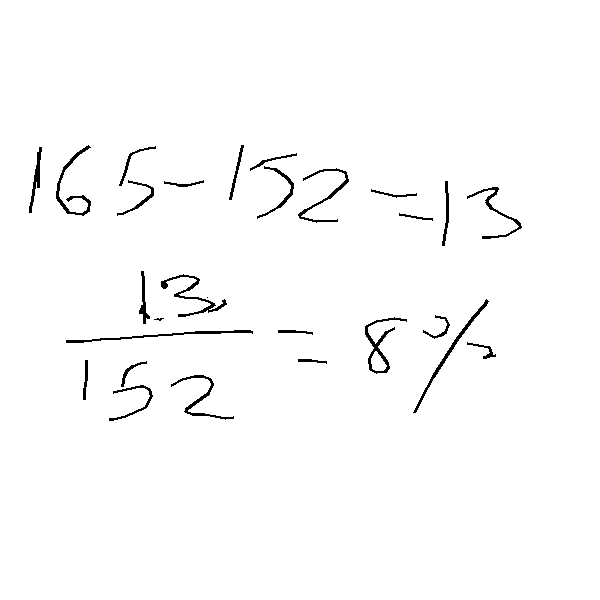 165-152=13
13
152
=8%